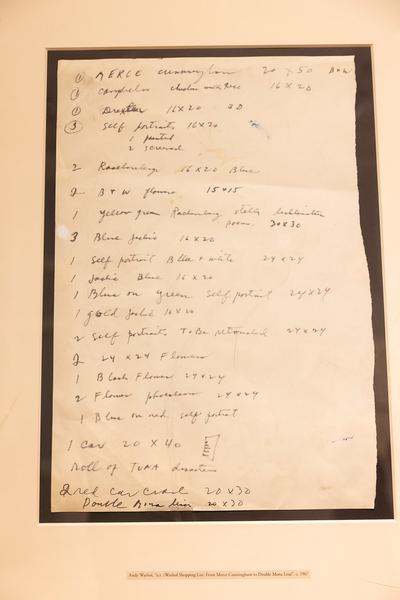 ① MERCE Cunningham 20 x 50 B+W
① Campbells chicken with rice 16 X 20
① 16 X 20 3D
③ Self portraits 16x20
1 painted
2 screened
2 Rauchenberg 16 X 20 Blue
2 B + W flowers 15 x 15
1 yellow green Stella
30 X 30
3 Blue Jackie 16 x 20
1 Self portrait + white 24 x 24
1 Jackie Blue 16 x 20
1 Blue on green Self portrait 24 x 24
1 gold Jackie 16 x 20
2 Self portraits To Be 24 x 24
2 24 x 24 Flowers
1 Black Flower 24 x 24
2 Flower 24 x 24
1 Blue on red self portrait
1 Car 20 X 40
Roll of TUNA disaster
2 red car crash 20 x 30
Double Mona Lisa 20 x 30
Andy Warhol, "(Warhol Shopping List: From Merce Cunningham to Double Mona Lisa)", c. 1967